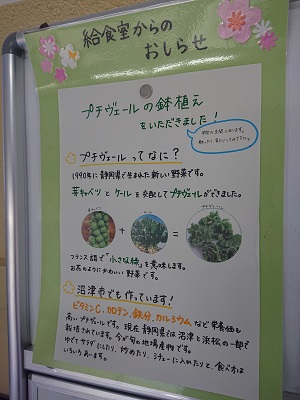 給食室からの
おしらせ
プチヴェールの鉢植え
をいただきました!
プチヴェール ってなに?
1990年に静岡県で生まれた新しい野菜です。
芽キャベツ と ケール を交配してプチヴェールができました。
+
=
フランス語で「小さな緑」を意味します。
お花のようにかわいい野菜です。
沼津市でも作っています!
ビタミンC、カロテン、鉄分、カルシウム など 栄養価も
高いプチヴェールです。現在 静岡県では沼津と浜松の一部で
栽培されています。今が旬の地場産物です。
ゆでて サラダにしたり、炒めたり、シチューに入れたりと、食べ方は
いろいろあります。